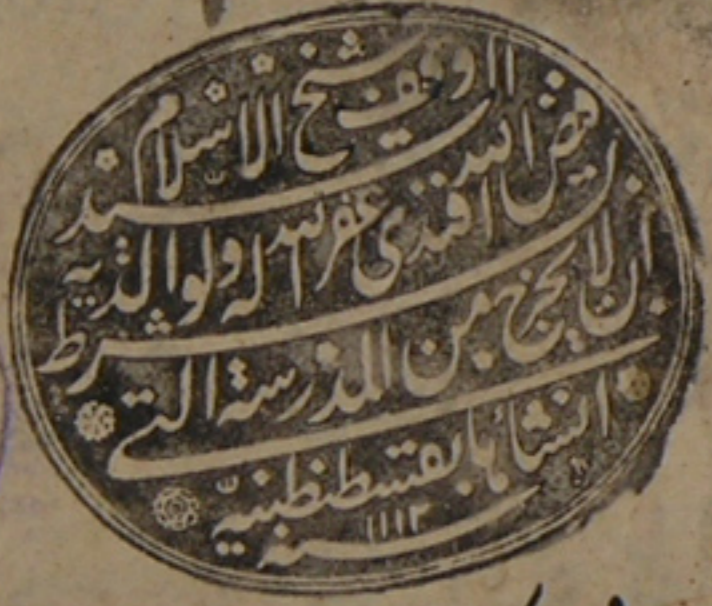 وقف شيخ الاسلام السيد
فيض الله افندى غفر الله له ولوالديه
بشرط أن لا يخرج من المدرسة التي
انشأها بقسطنطنيّة
سنه ١١١٢